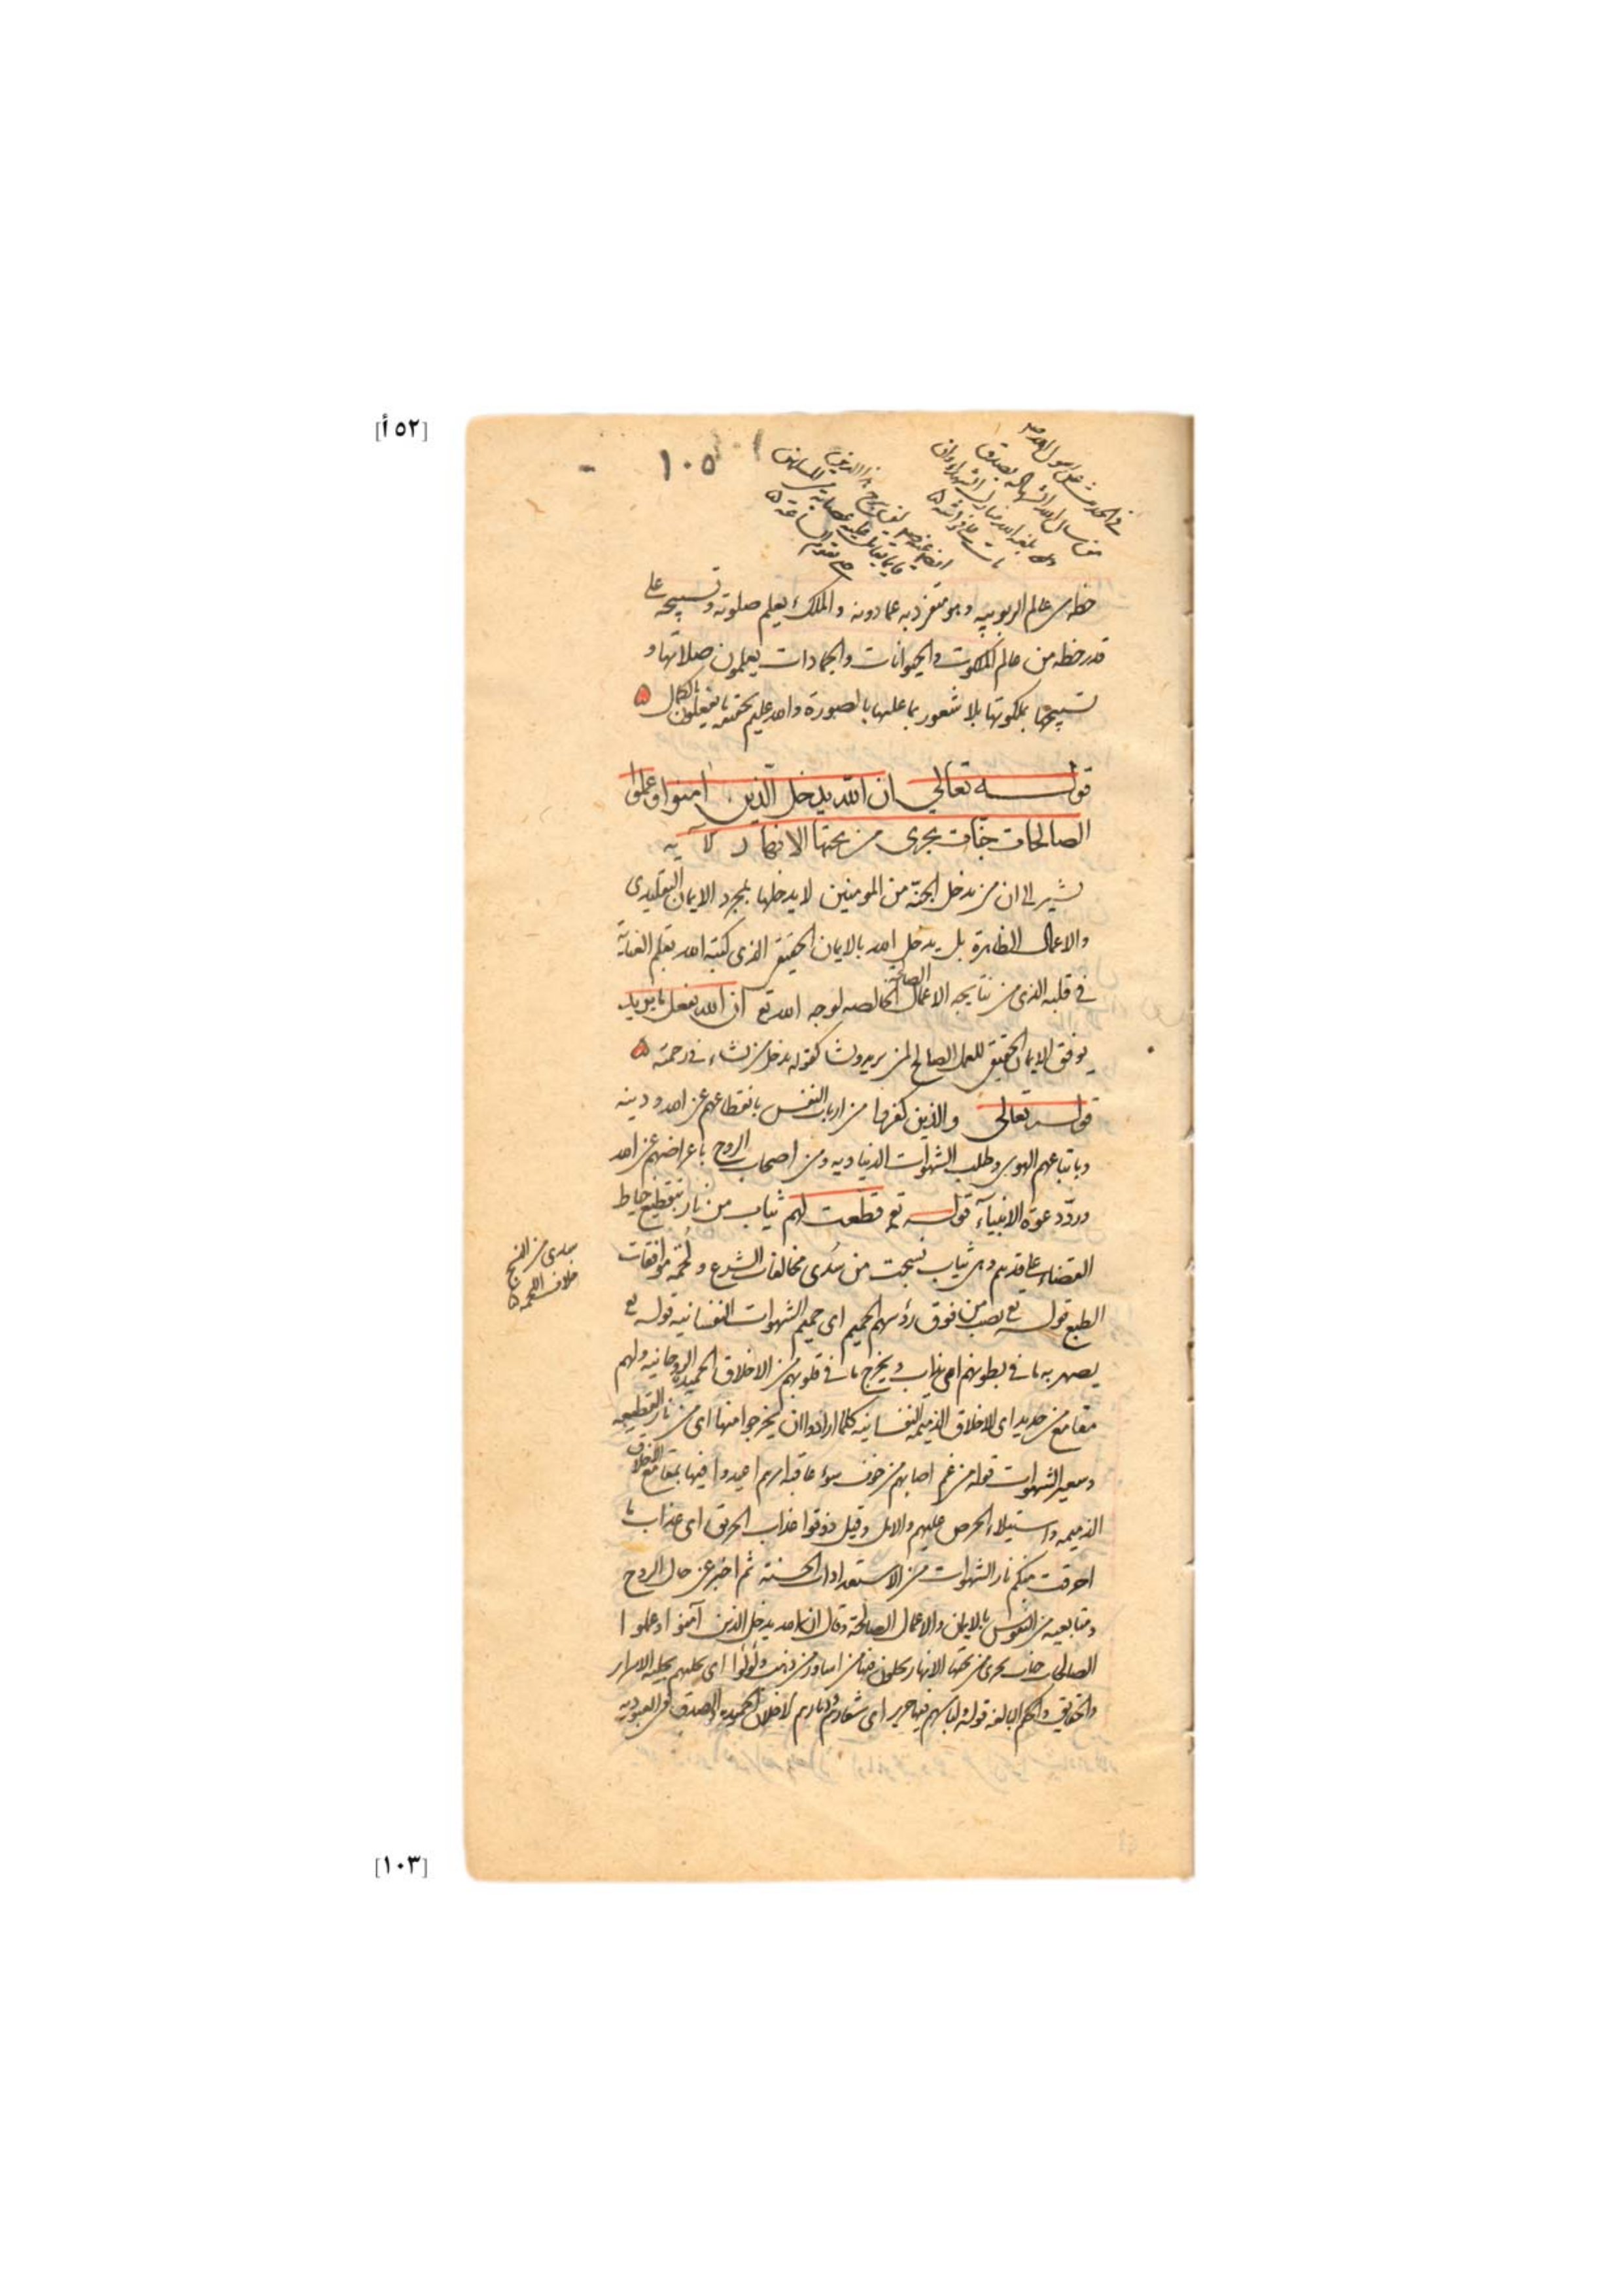 [٥٢ أ]
١٠٥
في الحديث عن رسول الله صلعم
من سال الله الشهادة بصدق
بلغه الله منازل الشهداء وان
مات على فراشه
حظه من عالم الربوبيه وهو متفرد به عما دونه والملك يعلم صلوته وتسبيحه على
قدر حظه من عالم الملكوت والحيوانات والجمادات يعلمون صلاتها و
تسبيحها بملكوتها بلا شعور بما عليها بالصورة والله عليم بحقيقة ما يفعلون بالكمال
قوله تعالى ان الله يدخل الذين امنوا وعملوا
الصالحات جنّات تجرى من تحتها الانهار الآيه
يشير الى ان من يدخل الجنّة من المومنين لا يدخلها بمجرد الايمان التقليدى
والاعمال الظاهرة بل يدخل الله بالايمان الحقيقى الذى كتبه الله بقلم العناية
في قلبه الذى من نتايجه الاعمال الصالحة الخالصه لوجه الله تع ان الله يفعل ما يريد
يوفق الايمان الحقيقى للعمل الصالح لمن يريد ويشا كقوله يدخل من يشاء في رحمته
قوله تعالى والذين كفروا من ارباب النفس بانقطاعهم عن الله ودينه
وباتباعهم الهوى وطلب الشهوات الدنياويه ومن اصحاب الروح باعراضهم عن الله
وردّ دعوة الانبيآء قوله تع قطّعت لهم ثياب من نار بتقطيع خياط
القضاء على قدهم وهى ثياب نسجت من سُدى مخالفات الشرع ولُحمة موافقات
سدى من النسج
خلاف اللحمه
الطبع قوله تع يصب من فوق رؤسهم الحميم اى حميم الشهوات النفسانيه قوله تع
يصهر به ما في بطونهم اى يذاب ويخرج ما في قلوبهم من الاخلاق الحميدة الروحانيه ولهم
مقامع من حديد اى الاخلاق الذميمه النفسانيه كلما ارادوا ان يخرجوا منها اى من نار القطيعه
وسعير الشهوات قوله من غم اصابهم من خوف سوء عاقبة امرهم اعيدوا فيها بمقامع الاخلاق
الذميمه واستيلاء الحرص عليهم والامل وقيل ذوقوا عذاب الحريق اى عذاب ما
احرقت منكم نار الشهوات من الاستعدادات الحسنة ثم اخبر عن حال الروح
ومتابعيه من النفوس بالايمان والاعمال الصالحة وقال ان الله يدخل الذين آمنوا وعملوا
الصالحات جنات تجرى من تحتها الانهار يحلون فيها من اساور من ذهب ولؤلؤا اى يحليهم بحلية الاسرار
والحقايق والحكم البالغه قوله ولباسهم فيها حرير اى شعارهم ودثارهم الاخلاق الحميدة والصدق في العبودية
[١٠٣]